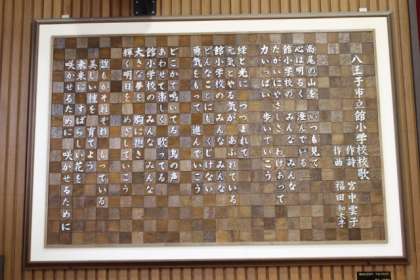 八王子市立館小学校校歌
作詩 宮中雲子
作曲 福田和禾子
高尾の山を いつも見て
心は明るく 澄んでいる
館小学校の みんな みんな
たがいにやさしく 助けあって
力いっぱい 歩いていこう
緑と光に つつまれて
元気とやる気が あふれている
館小学校の みんな みんな
どんなことにも くじけない
勇気をもって 進んでいこう
どこかで鳴いてる 鳥の声
あわせて楽しく 歌ってる
館小学校の みんな みんな
大きな夢を 胸に抱き
輝く明日を 呼んでいこう
誰もがそれぞれ もっている
美しい種を 育てよう
未来に すばらしい花を
咲かせるために 咲かせるために